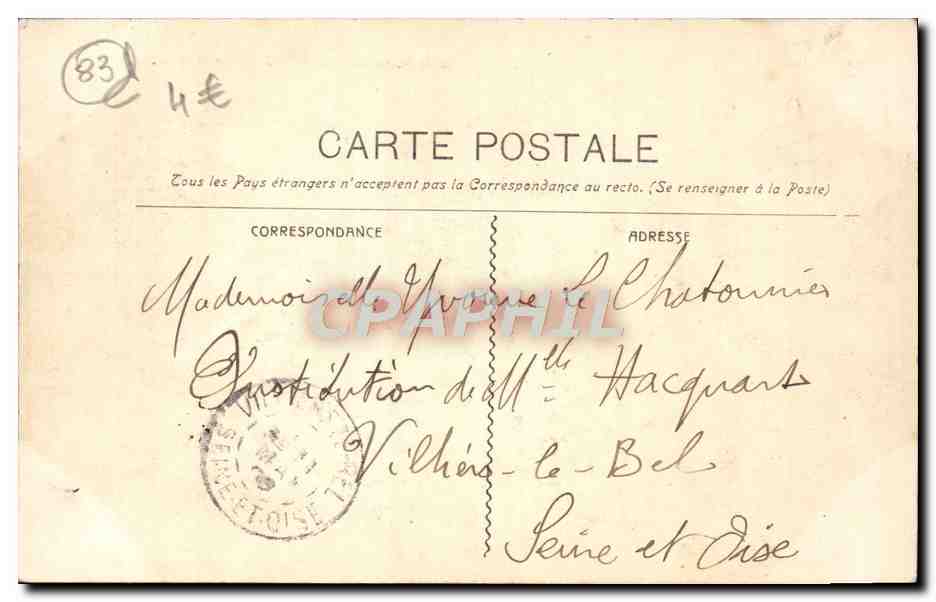 83
4€
CARTE POSTALE
Tous les Pays étrangers n'acceptent pas la Correspondance au recto. (Se renseigner à la Poste)
CORRESPONDANCE
ADRESSE
Mademoiselle Yvonne Le Chatonnier
CPAPHIL
Institution de Mlle Hacquart
Villiers-le-Bel
Seine et Oise
VILLIERS-LE-BEL
SEINE-ET-OISE